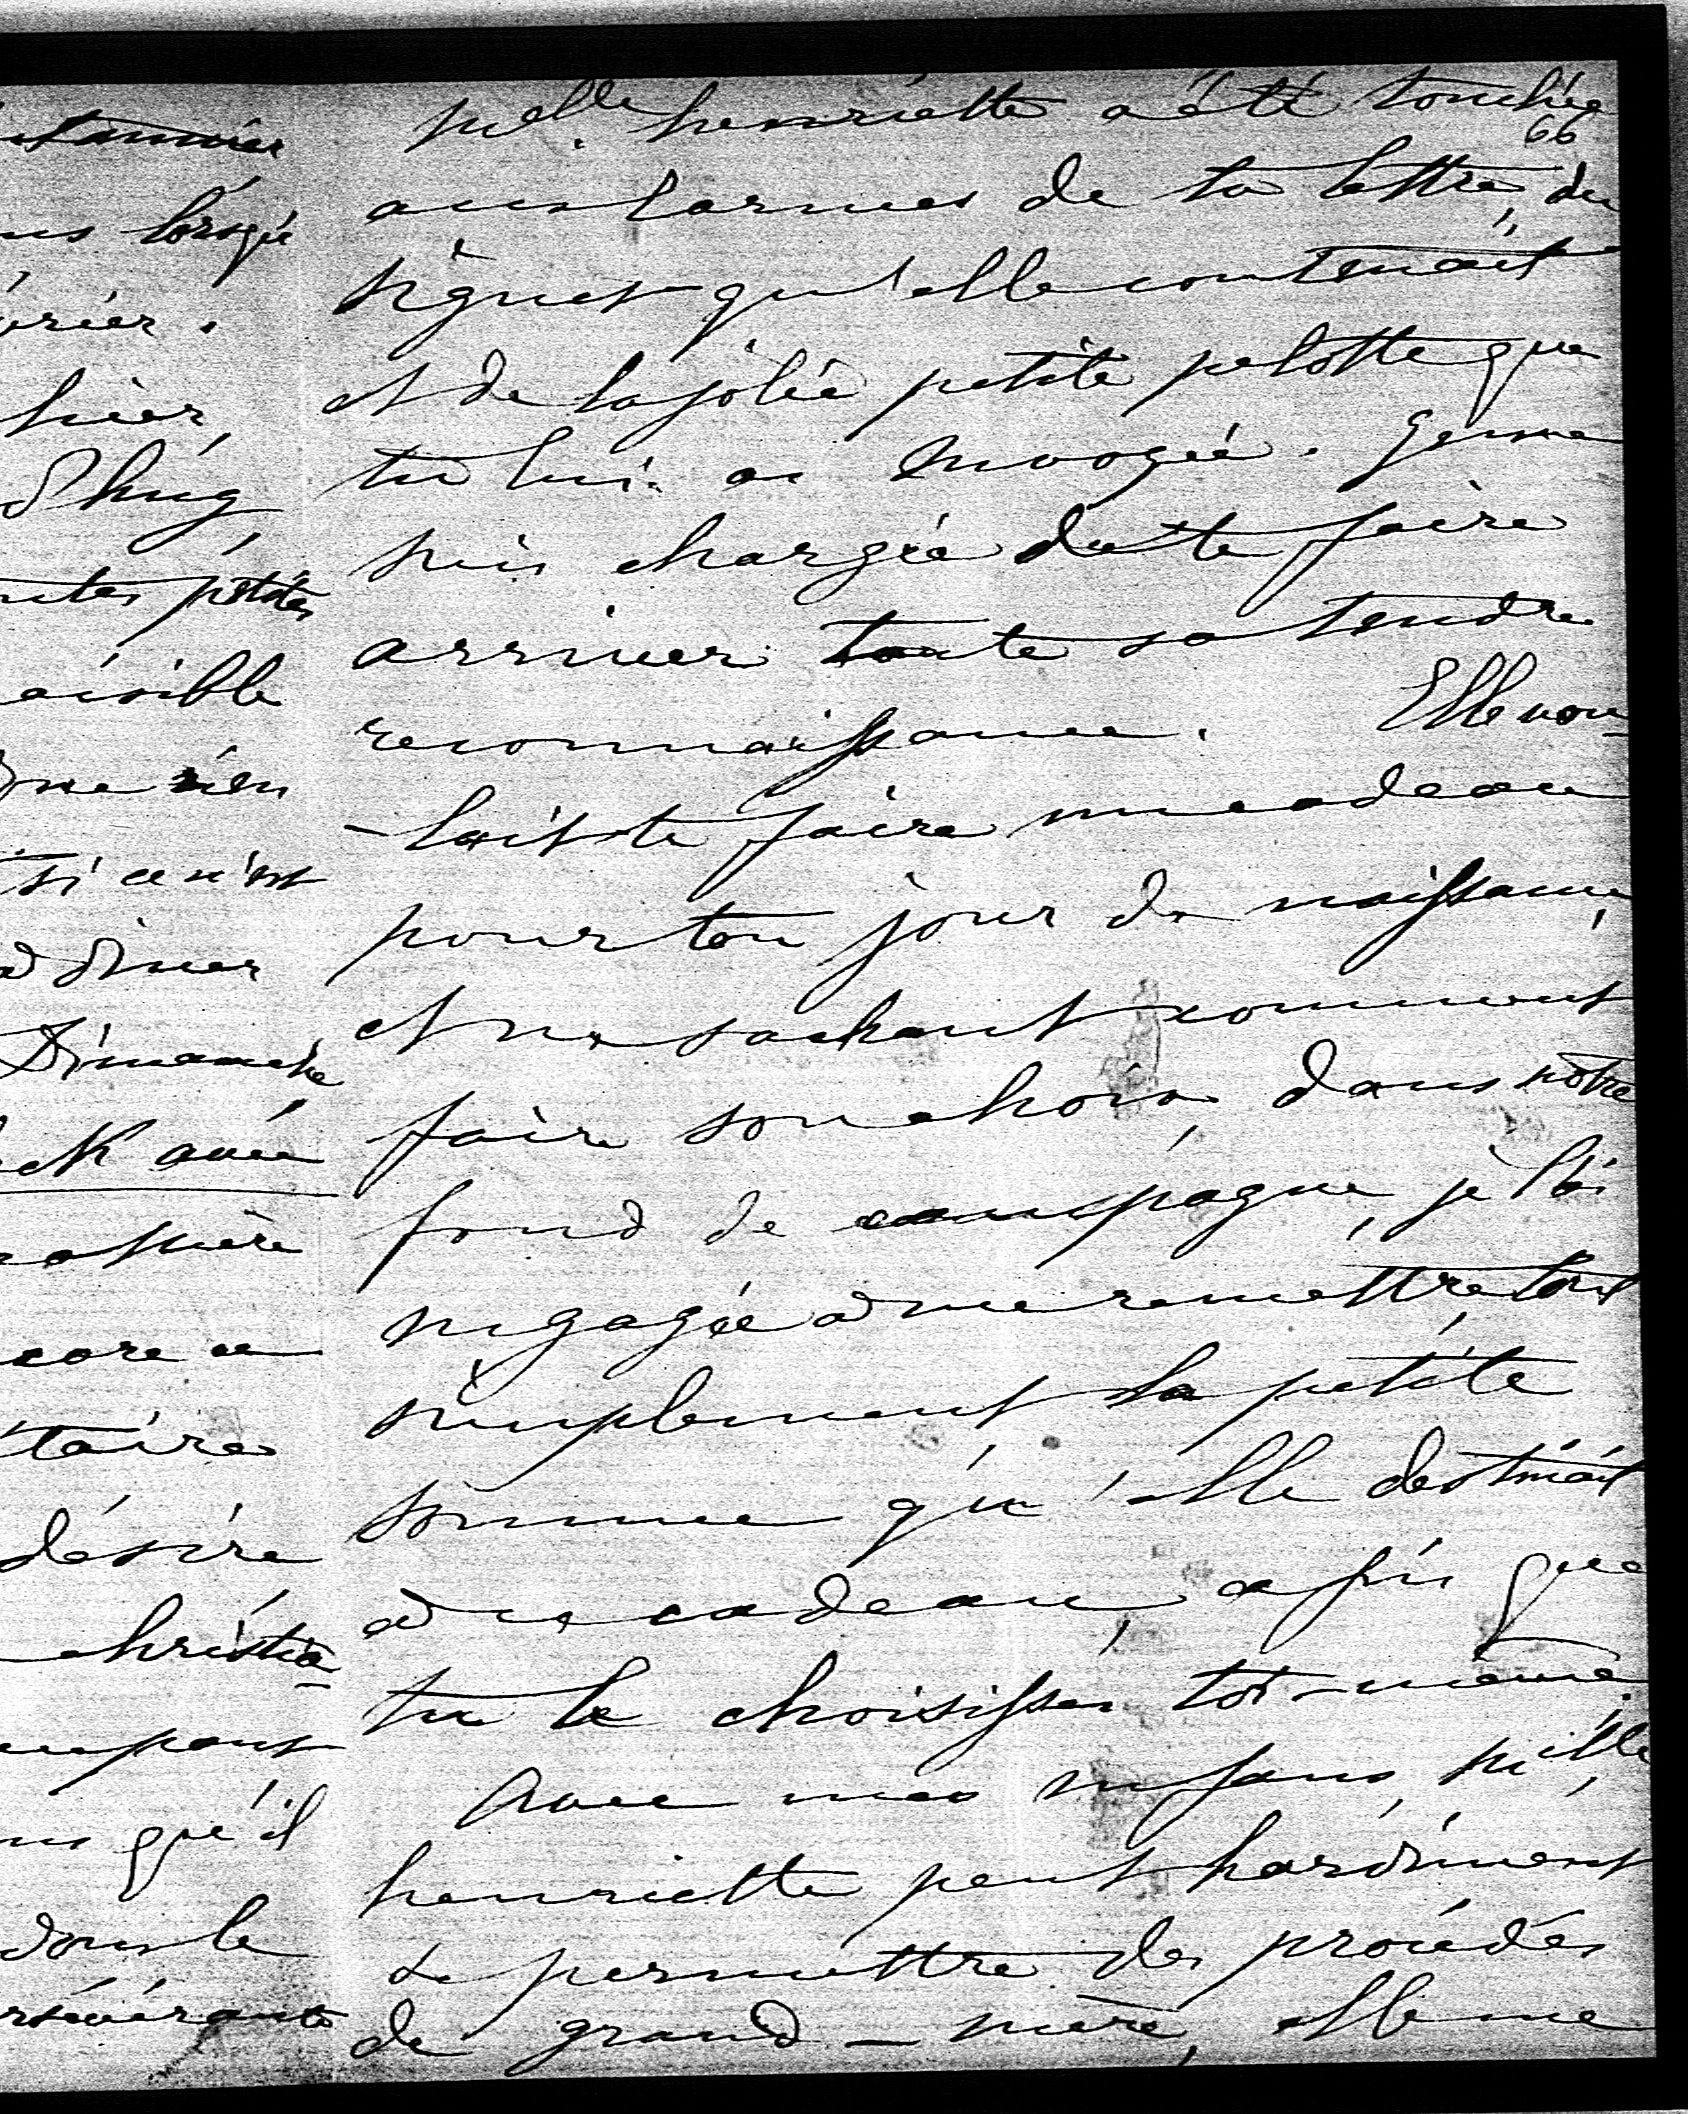 66
Melle. henriette a été touchée
aux larmes de ta lettre, du
signet qu'elle contenait
et de la jolie petite pelotte que
tu lui as envoyée. Je me
suis chargée de te faire
arriver toute sa tendre
reconnaissance. Elle vou-
-lait te faire un cadeau
pour ton jour de naissance,
et ne sachant comment
faire son choix, dans notre
fond de campagne, je l'ai
engagée à me remettre tout
simplement la petite
somme qu'elle destinait
à ce cadeau, afin que
tu le choisisses toi-même.
Avec mes enfans, Melle,
henriette peut hardiment
se permettre des procédés
de grand-mère, elle me
lorsqu
hier,
petites
rien
si ce n'est
à diner
Dimanche
avec
désire
christia-
qu'il
dans le